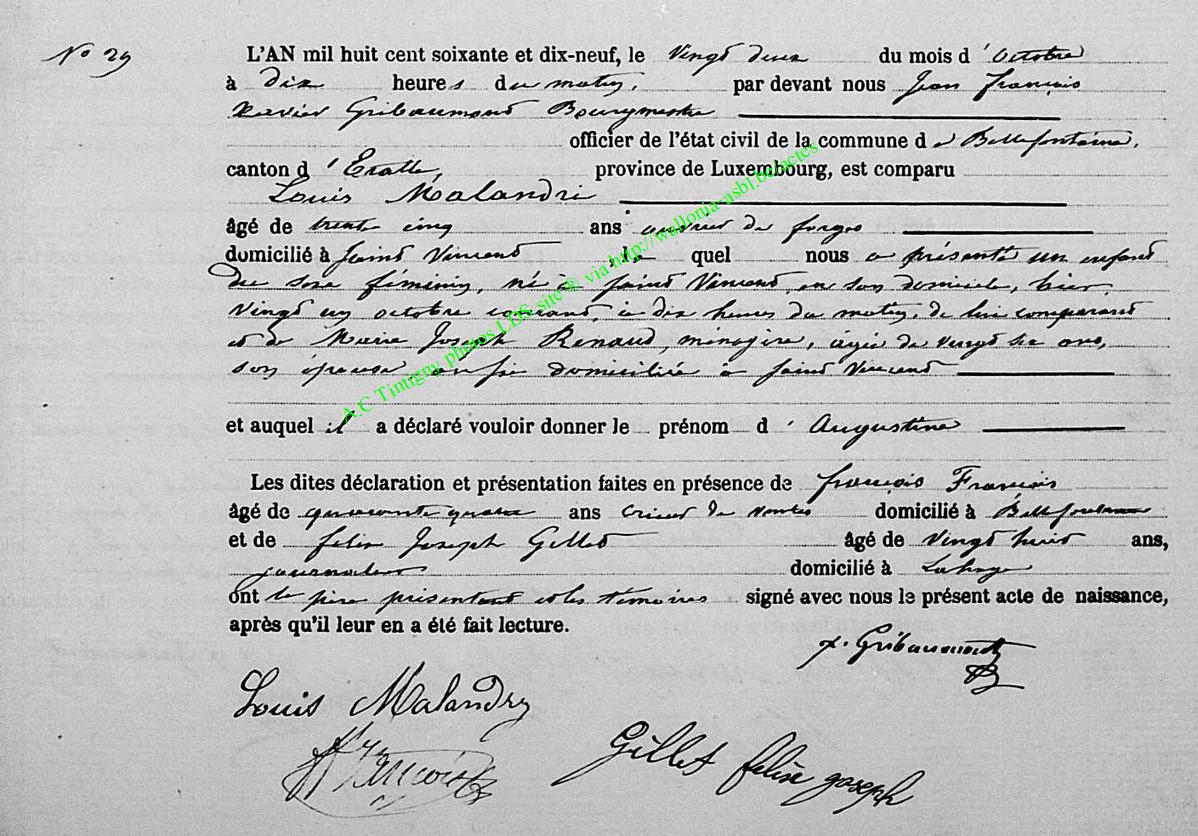 No 29
L'AN mil huit cent soixante et dix-neuf, le Vingt deux du mois d'Octobre
à dix heures du matin, par devant nous Jean François
Xavier Gribaumont Bourgmestre
officier de l'état civil de la commune de Bellefontaine,
canton d'Etalle, province de Luxembourg, est comparu
Louis Malandri
âgé de trente cinq ans ouvrier de forges
domicilié à Saint Vincent, lequel nous a présenté un enfant
du sexe féminin, né à Saint Vincent, en son domicile, hier,
vingt un octobre courant, à dix heures du matin, de lui comparant
et de Marie Joseph Renaud, ménagère, âgée de vingt six ans,
son épouse aussi domiciliée à Saint Vincent
et auquel il a déclaré vouloir donner le prénom d'Augustine
Les dites déclaration et présentation faites en présence de françois Francois
âgé de quarante quatre ans crieur de ventes domicilié à Bellefontaine
et de felix Joseph Gillet âgé de vingt huit ans,
journalier domicilié à Lahage
ont le père présentant et les témoins signé avec nous le présent acte de naissance,
après qu'il leur en a été fait lecture.
x. Gribaumont
Louis Malandry
francois
Gillet felixe joseph
A.C Tintigny photos LDS site ® via http://wallonia-asbl.be/actes